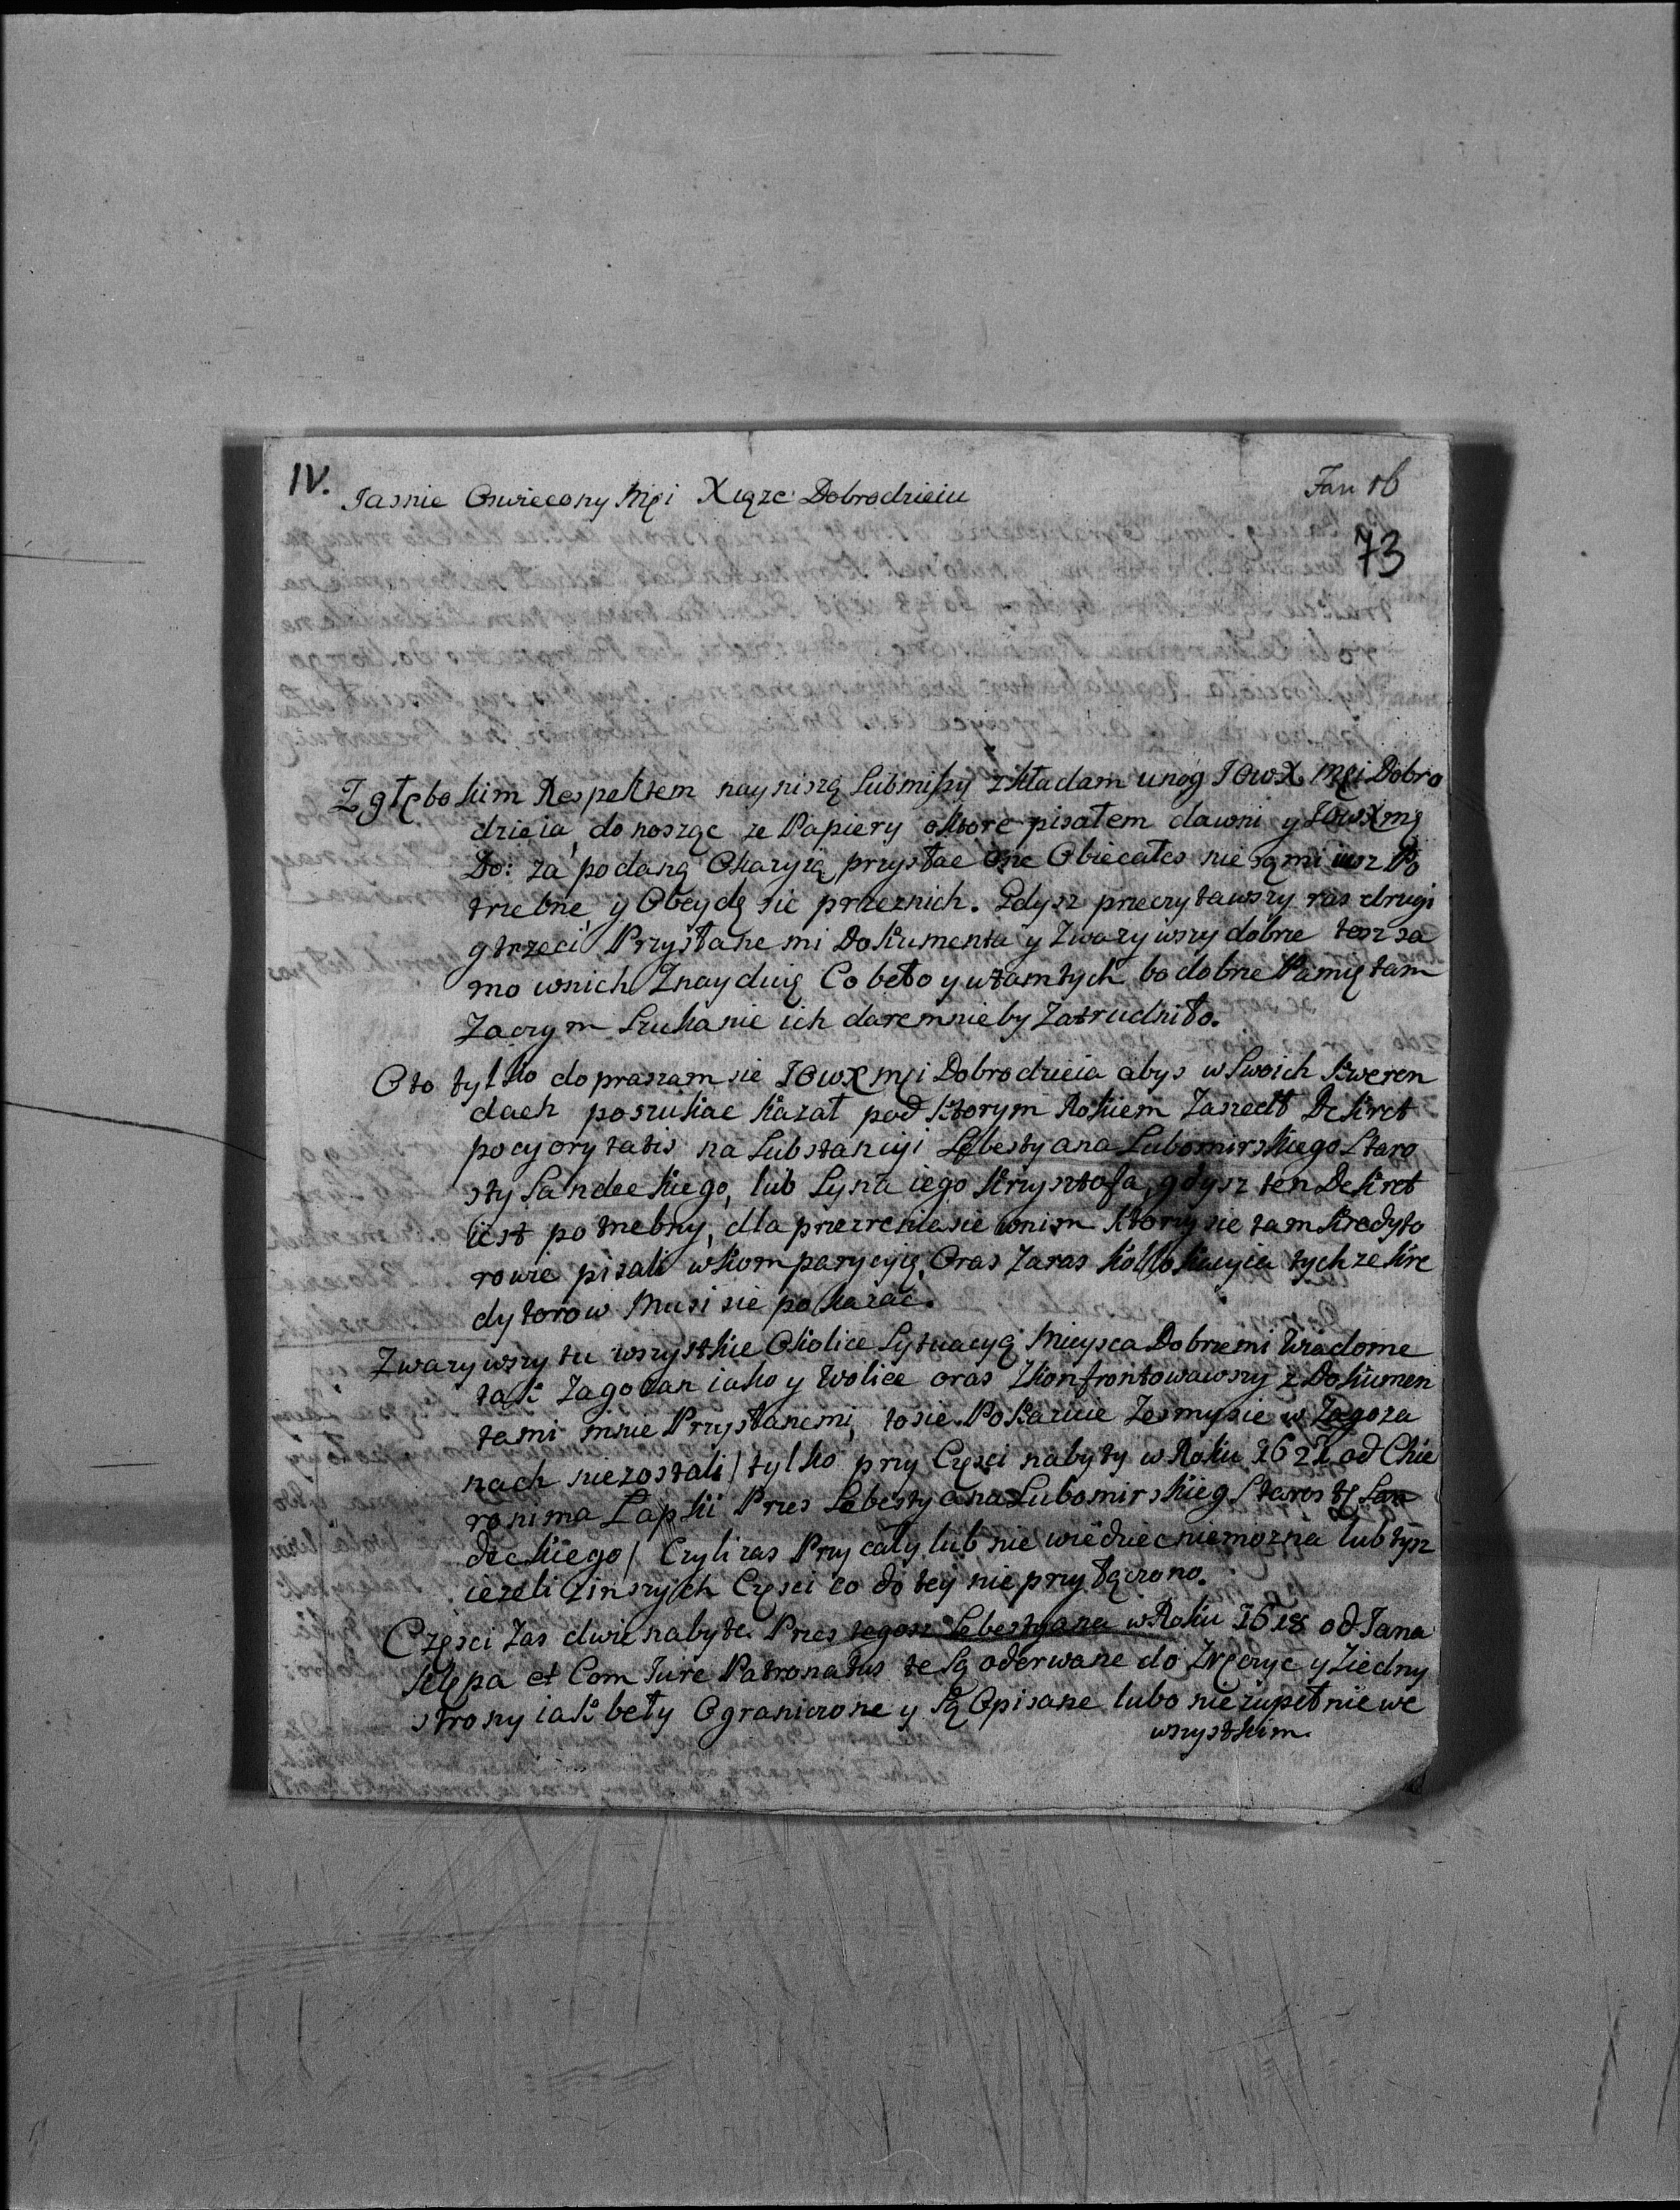 IV.
Jan 16
Jasnie Oswiecony Mci Xiąze Dobrodzieiu
73
Z głębokim Respektem nayniszą Submissy zkładam unog JOwX Mci Dobro
dzieia, donosząc ze Papiery oktore pisałem dawni y JOwXmę
Do: za podaną Okazyią przysłac One Obiecałes nie sąmi iusz Po
trzebne y Obeydę sie przeznich. Gdysz przeczytawszy ras drugi
y trzeci Przysłane mi Dokumenta y Zwazywszy dobrze tesz sa
mo wnich Znayduię Co beło y wtamtych bo dobrze Pamiętam
Zaczym Szukanie ich daremnieby Zatrudniło.
Oto tylko dopraszam sie JOwX Mci Dobrodzieia abys w Swoich Kweren
dach poszukac kazał pod ktorym Rokiem Zaszedł Dekret
pocyorytatis na Substancyi Sebestyana Lubomirskiego Staro
sty Sandeckiego, lub Syna iego Krzysztofa, gdysz ten Dekret
iest potrzebny, dla przezrenia sie wnim ktorzy sie tam kredyto
rowie pisali wkomparycyią, Oras Zaras kollokacyia tychze kre
dytorow Musi sie pokazac.
Zwazywszy tu wszystkie Okolice Sytuacyą Mieysca Dobrzemi Wiadome
tak Zagorzan iako y Wolice oras Zkonfrontowawszy z Dokumen
tami mnie Przysłanemi, to sie Pokazuie Zesmysie w Zagorza
nach niezostali / tylko przy Częsci nabyty w Roku 1621 od Chie
ronima Łapki Pres Sebestyana Lubomirskieg Starosty San
deckiego / Czyli zas Przy cały lub nie wiedziec niemozna lub tysz
iezeli z inszych Częsci co do tey nie przyłączono.
Częsci Zas dwie nabyte Pres tegosz Sebestyana w Roku 1618 od Jana
Kępa et Com Jure Patronatus te Są oderwane do Zręczyc y Ziedny
strony iak beły Ograniczone y Są Opisane lubo niezupełnie we
wszystkim